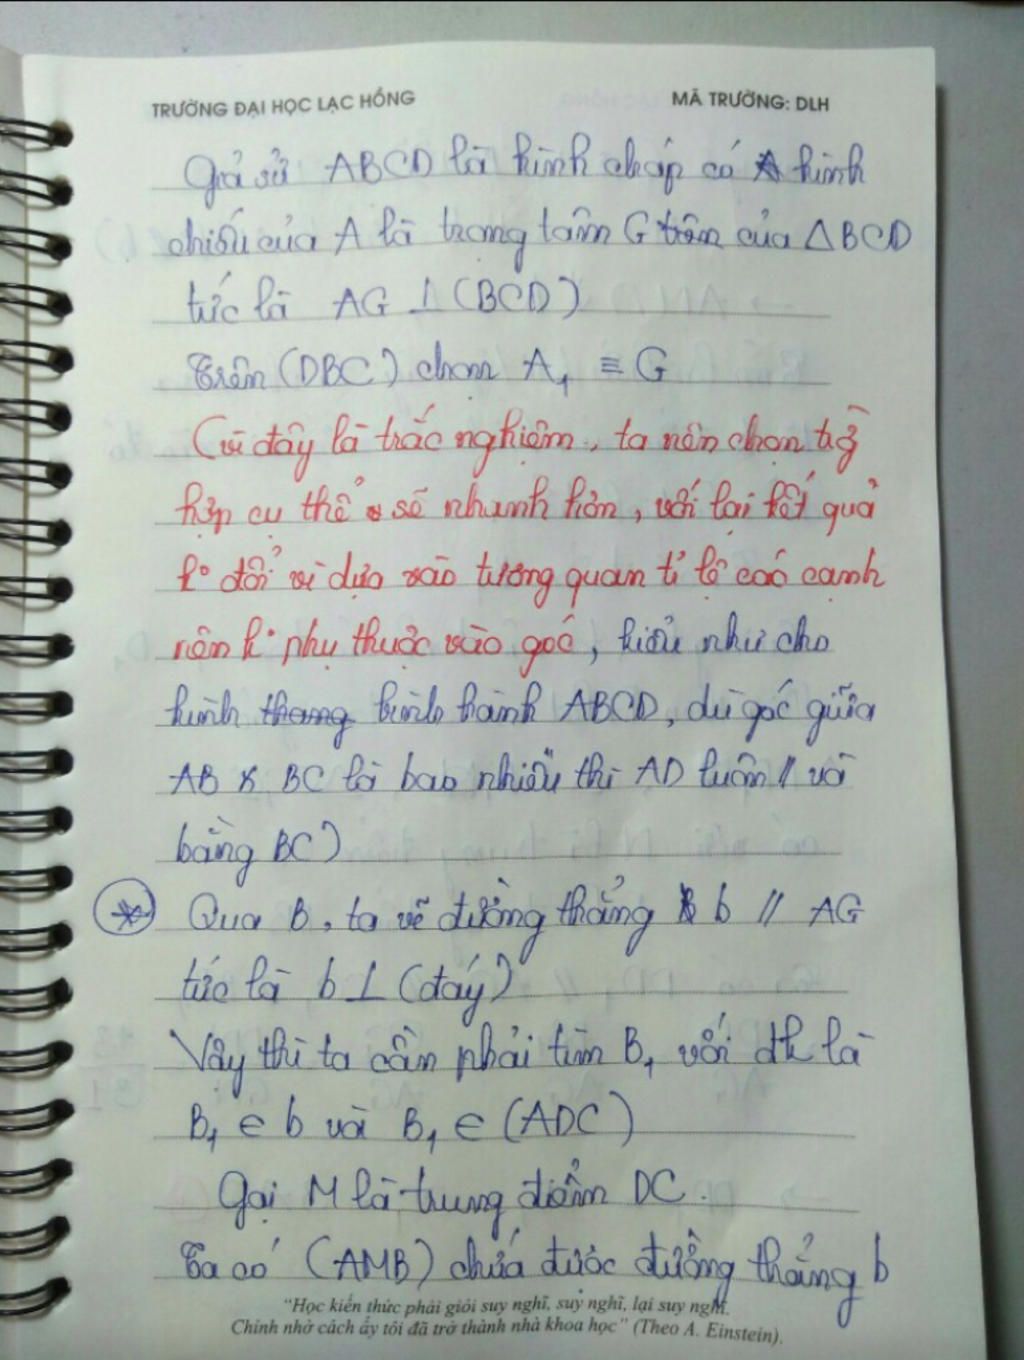 TRƯỜNG ĐẠI HỌC LẠC HỒNG MÃ TRƯỜNG: DLH
Giả sử ABCD là hình chóp có hình
chiếu của A là trọng tâm G trên của △BCD
tức là AG ⊥ (BCD)
Trên (DBC) chọn A₁ ≡ G
(vì đây là trắc nghiệm, ta nên chọn trg̀
hợp cụ thể sẽ nhanh hơn, với lại kết quả
k° đổi vì dựa vào tương quan tỉ lệ các cạnh
nên k° phụ thuộc vào góc, kiểu như cho
hình thang bình hành ABCD, dù góc giữa
AB & BC là bao nhiêu thì AD luôn // và
bằng BC)
* Qua B, ta vẽ đường thẳng b // AG
tức là b ⊥ (đáy)
Vậy thì ta cần phải tìm B₁ với đk là
B₁ ∈ b và B₁ ∈ (ADC)
Gọi M là trung điểm DC.
Ta có (AMB) chứa được đường thẳng b
"Học kiến thức phải giỏi suy nghĩ, suy nghĩ, lại suy nghĩ.
Chính nhờ cách ấy tôi đã trở thành nhà khoa học" (Theo A. Einstein).